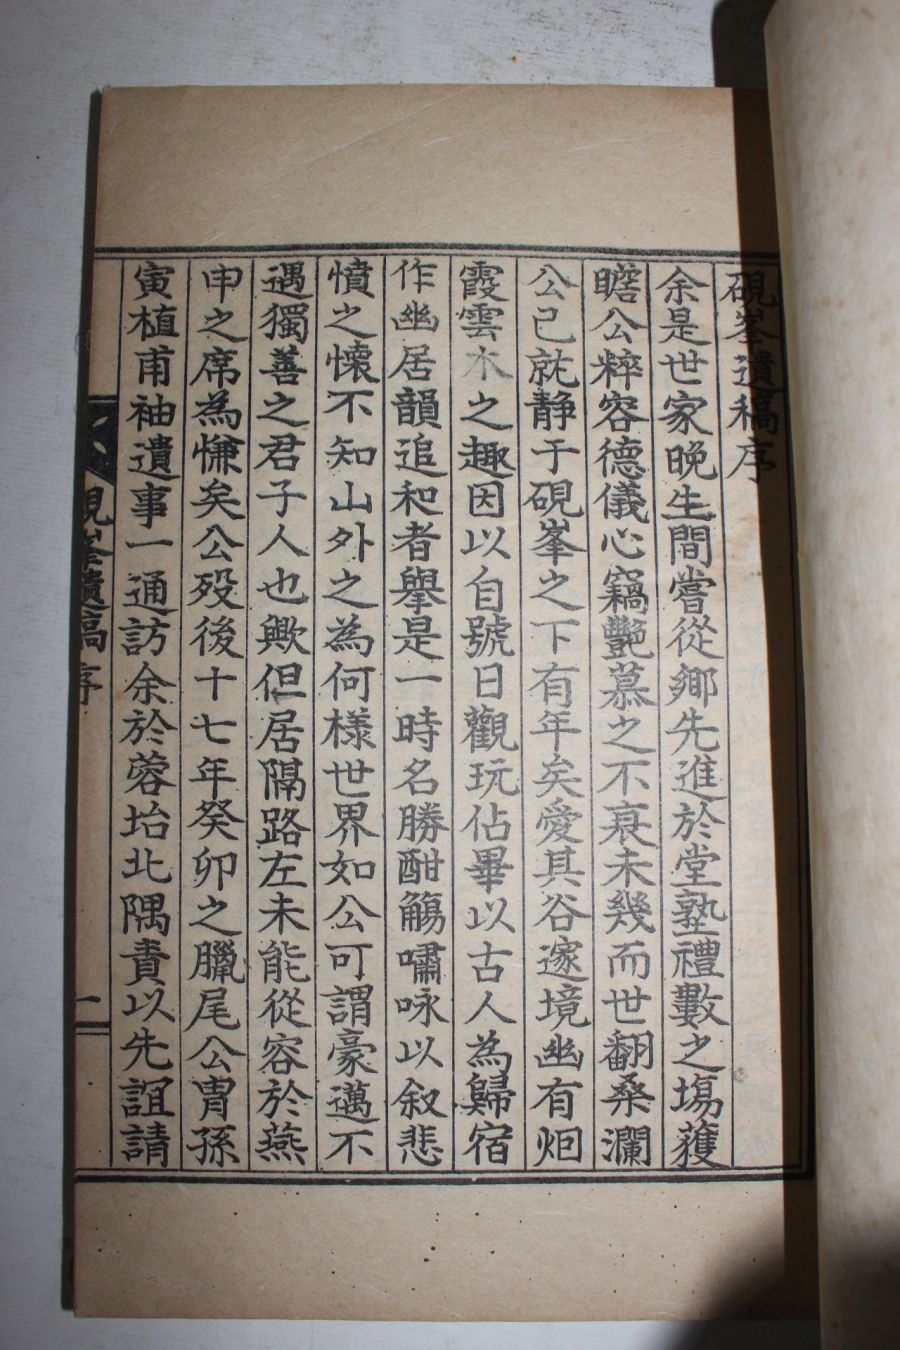 硯峯遺稿序
余是世家晩生間嘗從鄉先進於堂塾禮數之塲獲
瞻公粹容德儀心竊艷慕之不衰未幾而世翻桑瀾
公已就静于硯峯之下有年矣愛其谷邃境幽有烟
霞雲水之趣因以自號日觀玩佔畢以古人為歸宿
作幽居韻追和者擧是一時名勝酣觴嘯咏以叙悲
憤之懷不知山外之為何様世界如公可謂豪邁不
遇獨善之君子人也歟但居隔路左未能從容於燕
申之席為慊矣公歿後十七年癸卯之臘尾公胄孫
寅植甫袖遺事一通訪余於蓉坮北隅責以先誼請
硯峯遺稿 序 一